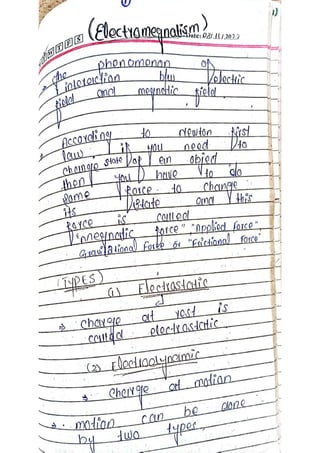 (Electromegnalism)
The phenomenon of
interection b/w electric
field and megnetic field
According to newton first
law if you need to
change state of an object
then you have to do
some force to change
its state and this
force is called
"megnetic force" "Applied force"
Gravitational force or "Frictional force"
(TYPES)
(1) Electrostatic
→ charge at rest is
called electrostatic
(2) Electrodynamic
→ charge at motion
→ motion can be done
by two types.